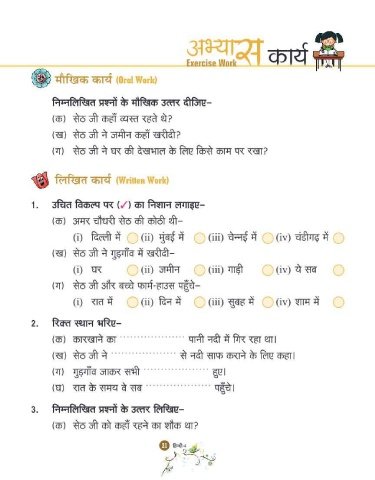 अभ्यास कार्य
Exercise Work
मौखिक कार्य (Oral Work)
निम्नलिखित प्रश्नों के मौखिक उत्तर दीजिए–
(क) सेठ जी कहाँ व्यस्त रहते थे?
(ख) सेठ जी ने जमीन कहाँ खरीदी?
(ग) सेठ जी ने घर की देखभाल के लिए किसे काम पर रखा?
लिखित कार्य (Written Work)
1. उचित विकल्प पर (✓) का निशान लगाइए–
(क) अमर चौधरी सेठ की कोठी थी–
(i) दिल्ली में (ii) मुंबई में (iii) चेन्नई में (iv) चंडीगढ़ में
(ख) सेठ जी ने गुड़गाँव में खरीदी–
(i) घर (ii) जमीन (iii) गाड़ी (iv) ये सब
(ग) सेठ जी और बच्चे फार्म-हाउस पहुँचे–
(i) रात में (ii) दिन में (iii) सुबह में (iv) शाम में
2. रिक्त स्थान भरिए–
(क) कारखाने का ................ पानी नदी में गिर रहा था।
(ख) सेठ जी ने ................ से नदी साफ कराने के लिए कहा।
(ग) गुड़गाँव जाकर सभी ................ हुए।
(घ) रात के समय वे सब ................ पहुँचे।
3. निम्नलिखित प्रश्नों के उत्तर लिखिए–
(क) सेठ जी को कहाँ रहने का शौक था?